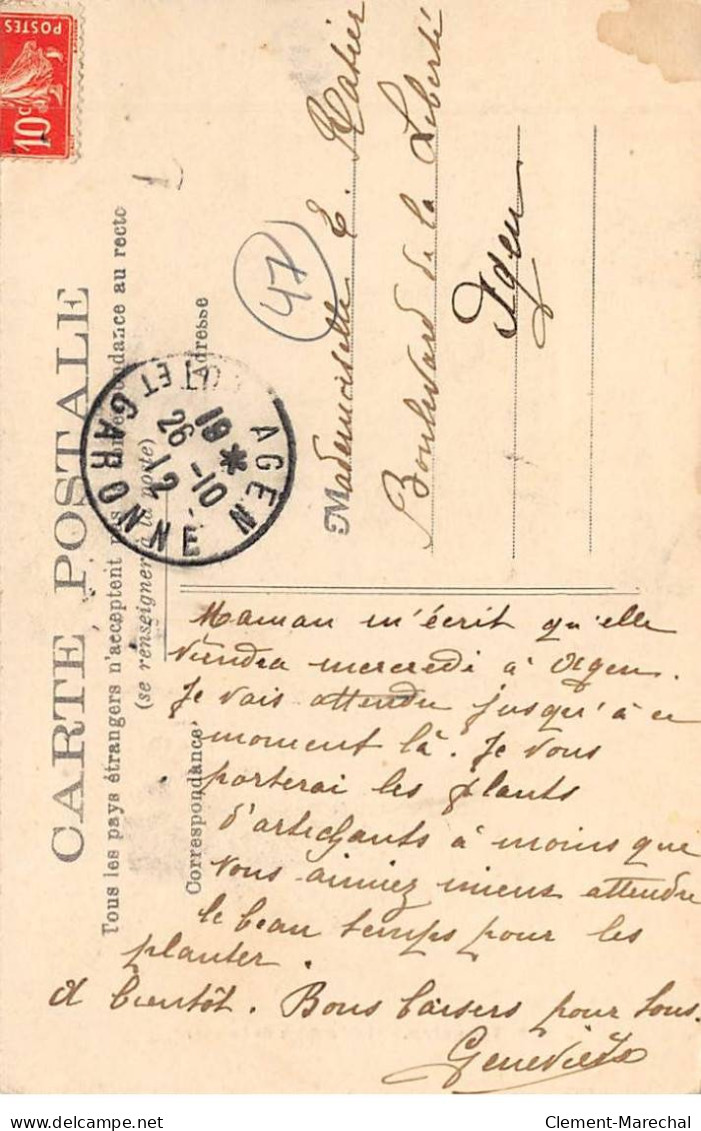 POSTES
10c
CARTE POSTALE
Tous les pays étrangers n'acceptent pas la correspondance au recto
(se renseigner à la poste)
Correspondance
Adresse
AGEN
LOT ET GARONNE
19 *
26 -10
12
47
Mademoiselle E. Ratier
Boulevard de la Liberté
Agen
Maman m'écrit qu'elle
viendra mercredi à Agen.
Je vais attendre jusqu'à ce
moment là. Je vous
porterai les plants
d'artichauts à moins que
vous aimiez mieux attendre
le beau temps pour les
planter.
A bientôt. Bons baisers pour tous.
Geneviève
Clement-Marechal